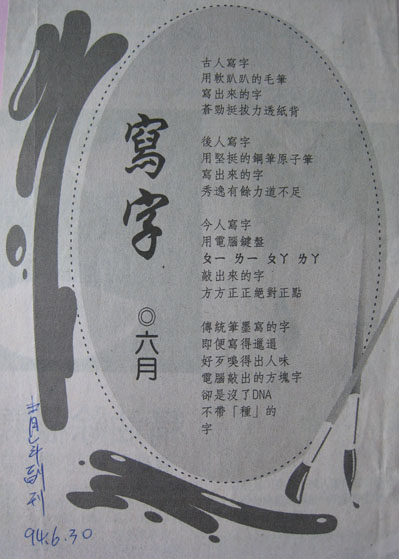 寫字
◎六月
古人寫字
用軟趴趴的毛筆
寫出來的字
蒼勁挺拔力透紙背
後人寫字
用堅挺的鋼筆原子筆
寫出來的字
秀逸有餘力道不足
今人寫字
用電腦鍵盤
ㄆㄧ ㄌㄧ ㄆㄚ ㄌㄚ
敲出來的字
方方正正絕對正點
傳統筆墨寫的字
即便寫得邋遢
好歹嗅得出人味
電腦敲出的方塊字
卻是沒了DNA
不帶「種」的
字
副刊
94.6.30